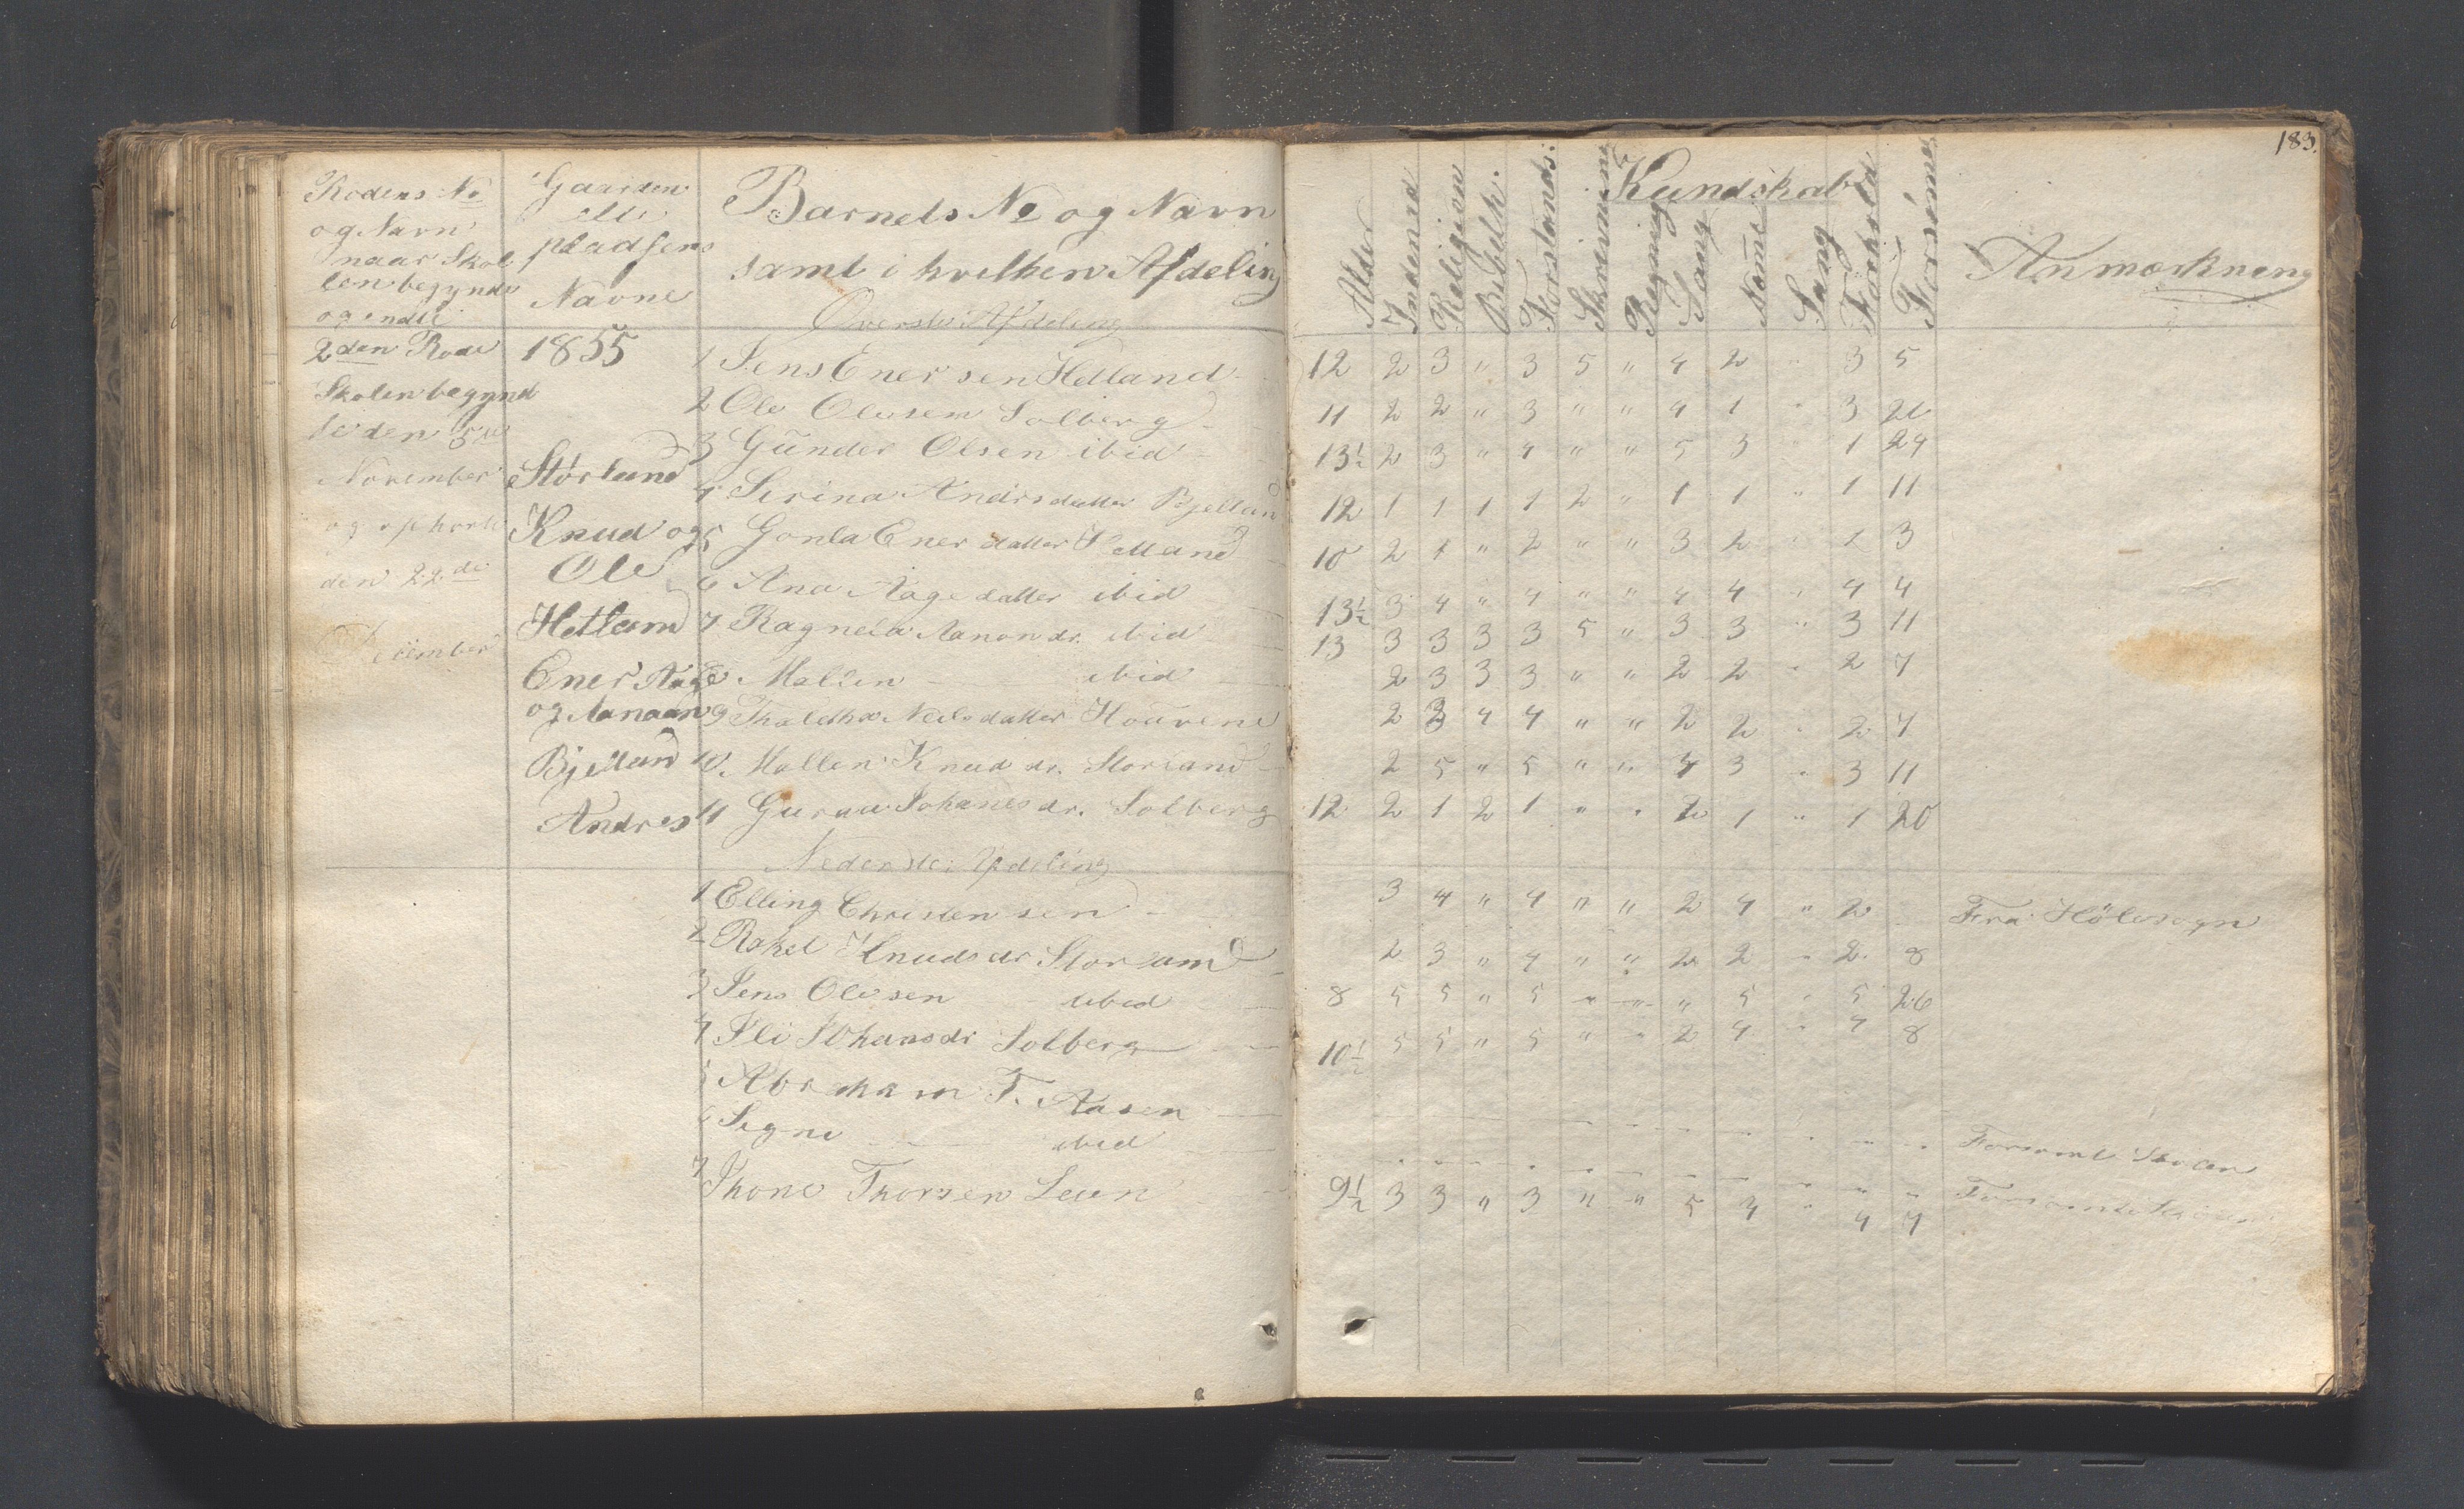 183.
Rodens No
og Navn
naar Skol
len begynde
og endte
Gaarden
elle
pladsens
Navne
Barnets No og Navn
samt i hvilken Afdeling
Øverste Afdeling
Alder
Indenad
Religion
Bibelh.
Forstands.
Skrivning
Regning
Sang
Kundskab
Forhold
Forsømt
Anmærkning
2den Rode 1855
Skolen begynd
te den 5te
November
og ophørte
den 22de
December
Störland
Knud og
Ole
Hetland
Ener Aage
og Aanaan
Bjelland
Andres
1 Jens Enersen Hetland 12 2 3 " 3 5 " 4 2 " 3 5
2 Ole Olesen Solberg 11 2 2 " 3 " " 4 1 " 3 21
3 Gunder Olsen ibid 13½ 2 3 " 4 " " 5 3 " 1 29
4 Serina Andrsdatter Bjelland 12 1 1 1 1 2 " 1 1 " 1 11
5 Gonla Enerdatter Hetland 10 2 1 " 2 " " 3 2 " 1 3
6 Ana Aagedatter ibid 13½ 3 4 " 4 " " 4 4 " 4 4
7 Ragnela Aanondr. ibid 13 3 3 3 3 5 " 3 3 " 3 11
8 Mallen — ibid 2 3 3 3 " " 2 2 " 2 7
9 Neilsdatter 2 3 4 4 " " 2 2 " 2 7
10. Mallen Knuddr. Storland 2 5 " 5 " " 4 3 " 3 11
11 Johanesdr. Solberg 12 2 1 2 1 " " 2 1 " 1 20
Nederste Afdeling
1 Elling Christensen 3 4 " 4 " " 2 4 " 2 Fra Hölesogn
2 Rakel Knudsdr Storland 2 3 " 4 " " 2 2 " 2 8
3 Jens Olesen ibid 8 5 5 " 5 " " " 5 " 5 26
4 Johansdr Solberg 10½ 5 5 " 5 " " 2 4 " 4 8
5 Abraham T. Aasen
6 Signe — ibid
Forsømt Skolen
7 Thorsen 9½ 3 3 " 3 " " 5 4 " 4 7